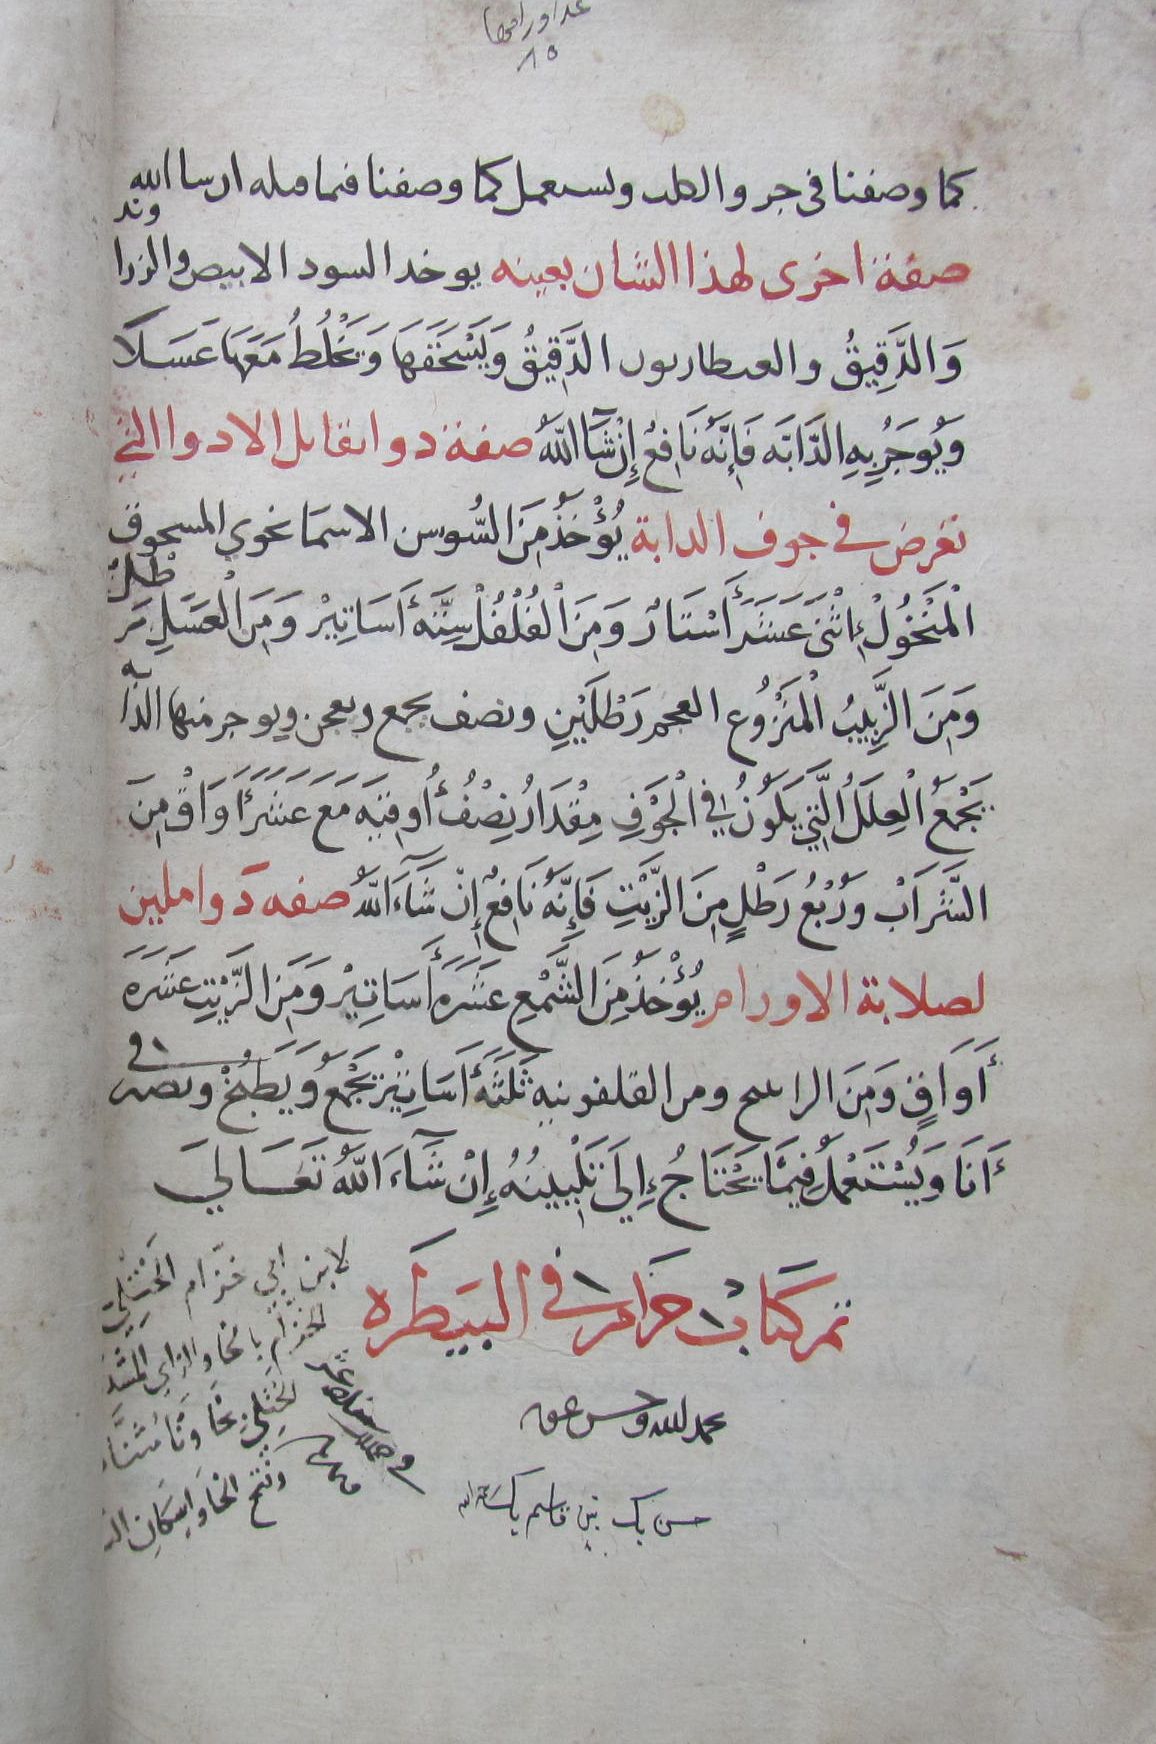 عد اوراقها
٨٥
كما وصفنا فى جرو الكلب ويستعمل كما وصفنا فيما قبله ان شا الله
صفة اخرى لهذا الشان بعينه يوخذ السود الابيض والزرا وند
وَالدَّقِيقُ والقنطاريون الدَّقِيقُ وَيَسْحَقَهَا وَيَخْلُطُ مَعَهَا عَسَلاً
وَيُوجَرُ بِهِ الدَّابَّه فَإِنَّهُ نَافِعٌ إِنْ شَآ اللّهُ صفة دوا يقابل الادوا التي
تعرض في جوف الدابة يُؤْخَذُ مِنَ السُّوسن الاسمانجوي المسحوق
الْمَنْخُولْ إثْنَى عَشَرَ أَسْتَارْ وَمِنَ الْفُلْفُلْ سِتَّة أَسَاتِيرْ وَمِنَ الْعَسَلِ رطلين
وَمِنَ الزَّبِيبُ الْمَنْزُوع العجم رَطْلَيْنِ ونصف يجمع ويعجن ويوجر منها الدابه
بَجْمَعُ الْعِلَلُ الَّتِي يَكَوُنُ فِي الْجَوْفِ مِقْدَارُ نِصْفُ أُوقِيَه مَعَ عَشَرَ أَوَاقْ مِنَ
الشَّرَابْ وَرُبْعُ رَطْلٍ مِنَ الزَّيْتِ فَإِنَّهُ نَافِعٌ إِنْ شَآءَ اللّهُ صفه دَوا ملين
لصلابة الاورام يُؤْخَذُ مِنَ الشَّمْعِ عَشَرَه أَسَاتِيرْ وَمِنَ الزَّيْتِ عَشَرَه
أَوَاقٍ وَمِنَ الراتينج ومن القلفونيه ثَلَثَهُ أَسَاتِيرْ يَجْمَعُ وَيَطْبُخْ ويصير فى
أَنَا وَيُسْتَعْمَلُ فِيمَا يَحْتَاجُ إِلَى تَلْيِينُهُ إِنْ شَآءَ اللّهُ تَعَالَي
تم كتاب حزام فى البَيطَره
بحمد لله وحسن عونه
حسن بك بن قاسم بك
لابن ابي خزّام الختلي
الخزام بالخا والزاي المشد
الختلي بخا وتا مثناه
وفتح الخا واسكان